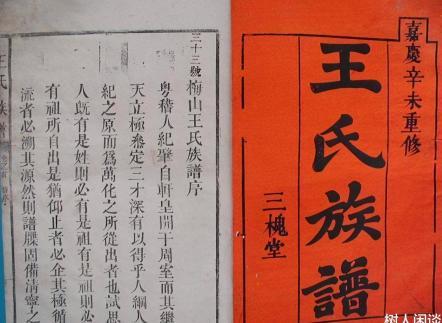 嘉慶辛未重修
王氏族譜
三槐堂
三十三號 梅山王氏族譜序
粤稽人紀肇自軒皇開于周室而其繼
天立極叅定三才深有以得乎人綱人
紀之原而爲萬化之所從出者也試思
人既有是姓則必有是祖有是祖則必
有祖所自出是猶仰止者必企其極循
流者必溯其源然則譜牒固備清寧之
王氏族譜
树人闲谈